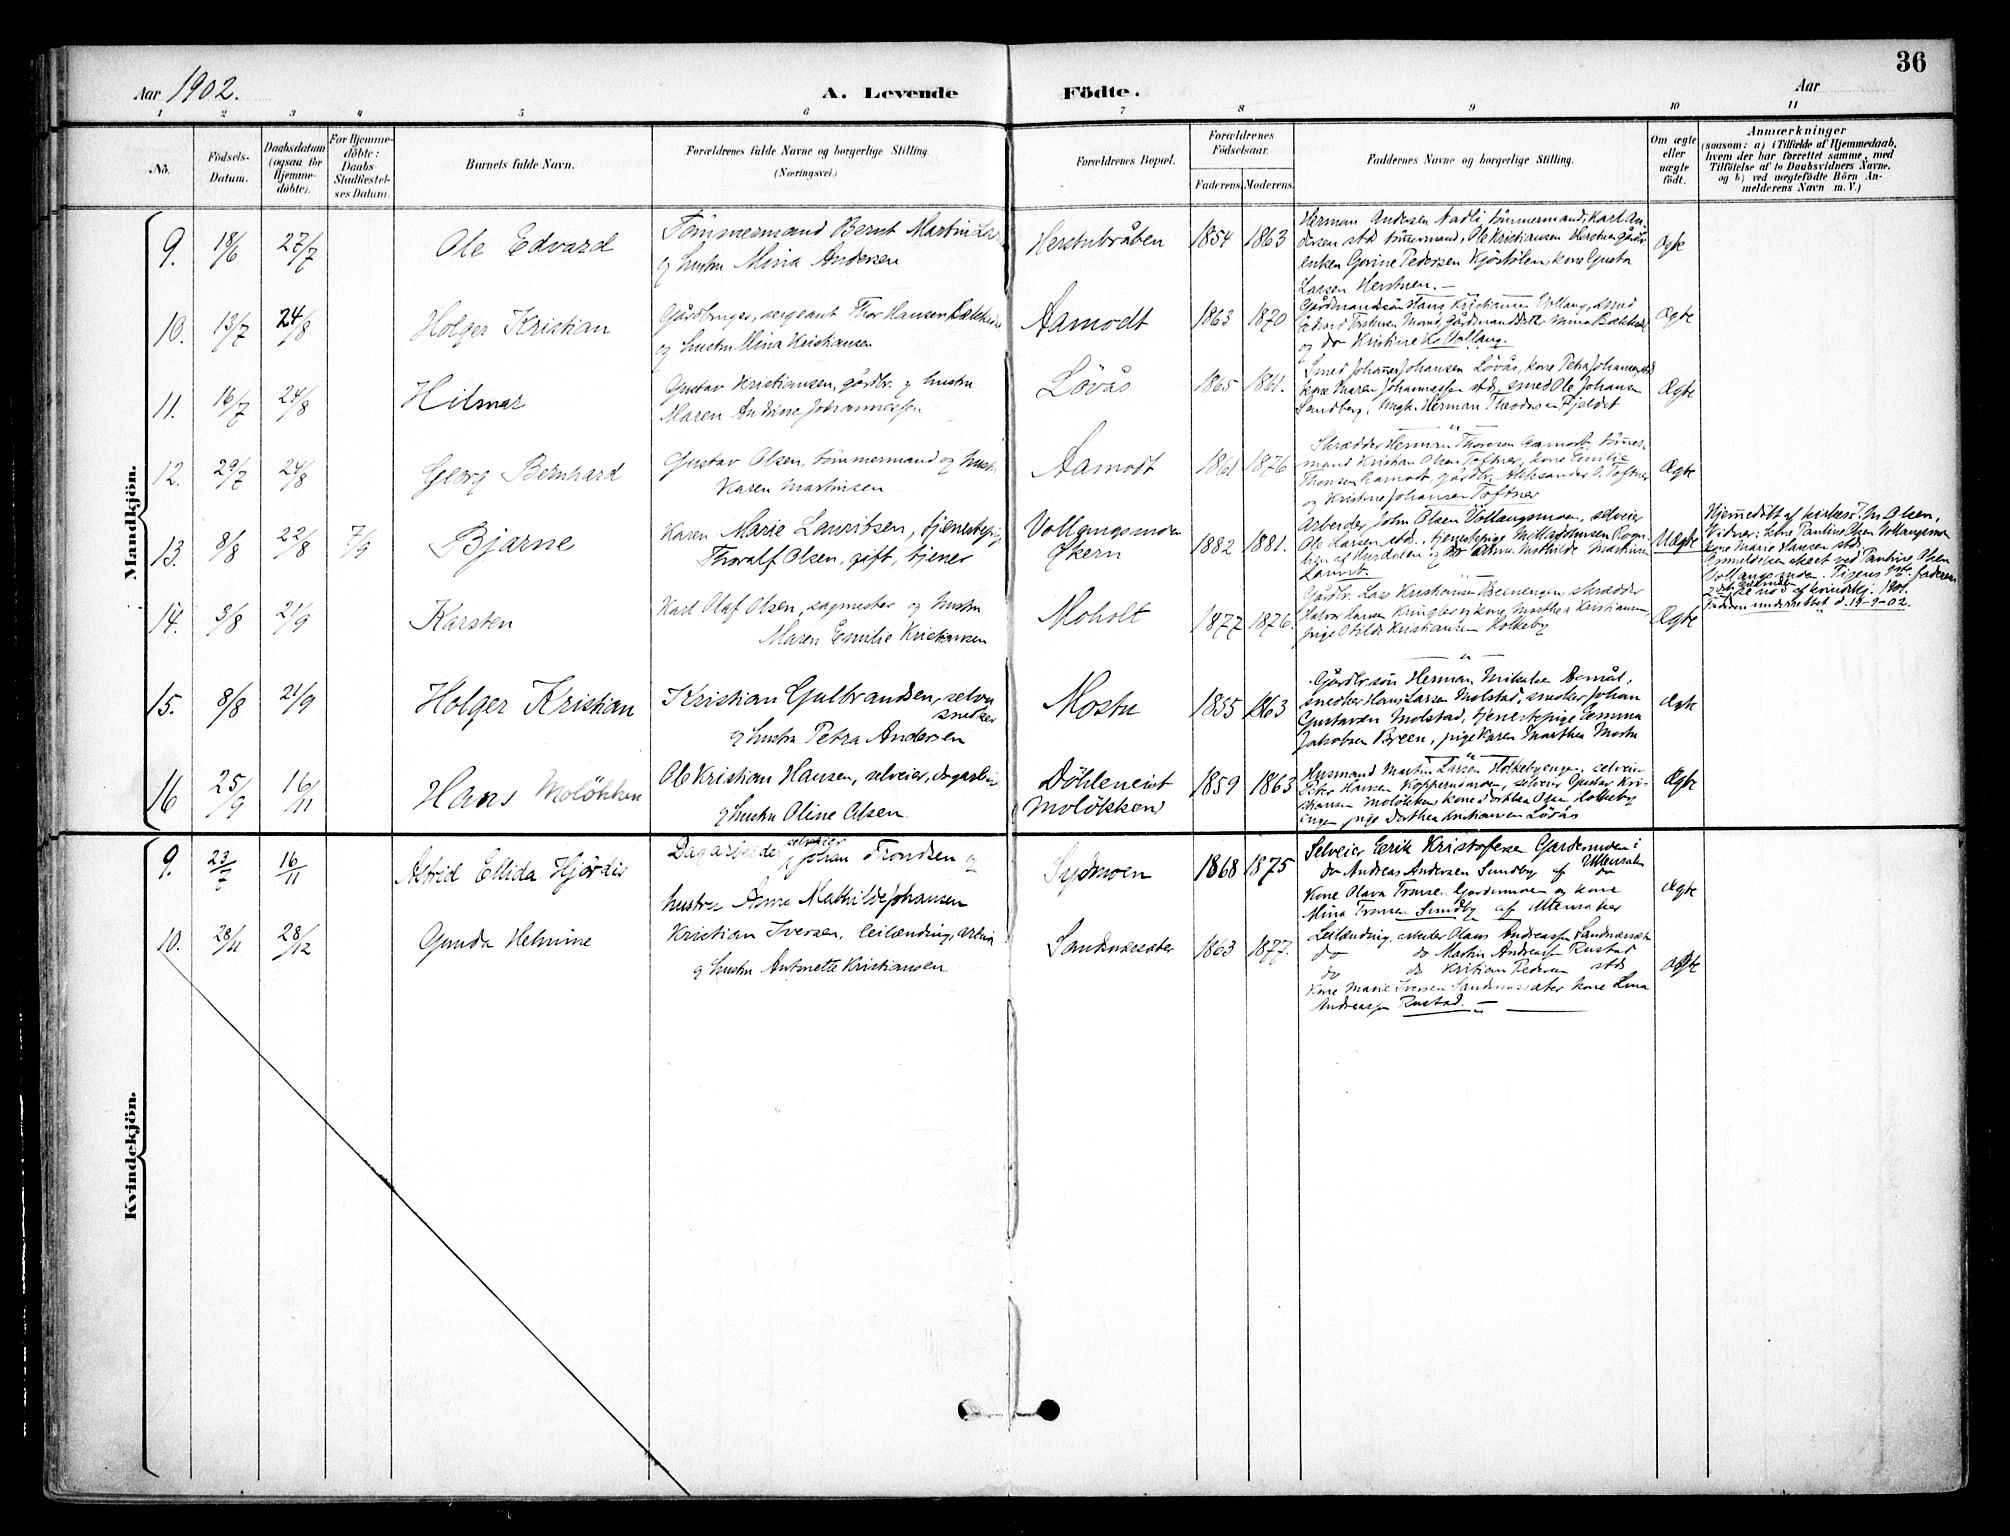 36
Aar 1902.
A. Levende Födte.
Aar
1 2 3 4 5 6 7 8 9 10 11
No.
Födsels-Datum.
Daabsdatum (ogsaa for Hjemmedöbte).
For Hjemmedöbte: Daabs Stadfæstelses Datum.
Barnets fulde Navn.
Forældrenes fulde Navne og borgerlige Stilling.
(Næringsvei.)
Forældrenes Bopæl.
Forældrenes Födselsaar.
Faderens. Moderens.
Faddernes Navne og borgerlige Stilling.
Om ægte eller uægte födt.
Anmærkninger
(saasom: a) i Tilfælde af Hjemmedaab, hvem der har forrettet samme, med Tilföielse af to Daabsvidners Navne. og b) ved uegtefödte Börn Anmelderens Navn m. V.)
Mandkjön.
9. 18/6 27/7 Ole Edvard
Tömmermand Bernt Martin
og hustru Mina Andersen
Herstubråben 1854 1863
Herman Andersen tömmermand, Karl An-
dersen stds tömmermand, Ole Kristiansen Herstuen gårdbr.
enken Gorine Pedersen Kjöstölen, kone Gusta
Larsen Herstuen.
Ægte
10. 13/7 24/8 Holger Kristian
Gårdbruger, sergeant Thor Hansen
og hustru Mina Kristiansen
Aamodt 1863 1870
Gårdmandssön Hans Kristiansen Vollaug, smed
og do Kristine K. Vollaug.
Ægte
11. 16/7 24/8 Hilmar
Gustav Kristiansen, gårdbr. og hustru
Maren Andrine Johannessen
Lövås 1865 1861.
Smed Johannes Johansen Lövås, kone Petra Johannessen
kone Maren Johannessen stds, smed Ole Johansen
Sandberg, Ungk. Herman Theodorsen Fjeldet
Ægte
12. 29/7 24/8 Georg Bernhard
Gustav Olsen, tömmermand og hustru
Karen Martinsen
Aamodt 1861 1876
Skrædder Herman Thoresen Aamodt, tömmer-
mand Kristian Olsen Toftner, kone Emilie
Thoresen Aamodt, gårdbr. Aleksander O. Toftner
og Kristine Johansen Toftner
Ægte
13. 8/8 22/8 7/9 Bjarne
Karen Marie Lauritsen, tjenestepige
Thoralf Olsen, gift, tjener
Vollaugsmoen
Økern 1882 1881.
Arbeider John Olsen Vollaugsmoen, selveier
Ole Larsen stds., tjenestepige
af Hurdalen og do Anna Mathilde Martinsen
Uægte
Hjemmedöbt af kirkes. M Olsen,
Vidner: kone Pauline Olsen Vollaugsmoen
kone Marie Hansen stds.
Anmeldelsen skeet ved Pauline Olsen
Vollaugsmoen.
Faderen underrettet d. 19-9-02.
14. 3/8 21/9 Karsten
Karl Olaf Olsen, sagmester og hustru
Maren Emilie Kristiansen
Moholt 1877 1876.
Gårdbr. Lars Kristiansen Breenengen, skrædder
Halvor Hansen Kringler og kone Marthea Kristiansen
pige Otilde Kristiansen Holkeby
Ægte
15. 8/8 21/9 Holger Kristian
Kristian Gulbrandsen, selvei
snedker
og hustru Petra Andersen
Mostu 1855 1863
Gårdbr. sön Herman Mikelsen Aamål,
snedker Hans Larsen Molstad, snedker Johan
Gustavsen Molstad, tjenestepige Emma
Jakobsen Breen, pige Karen Marthea Mostu
Ægte
16 25/9 16/11 Hans Molökken
Ole Kristian Hansen, selveier, dagarbeid
og hustru Oline Olsen.
Döhleneiet
Molökken 1859 1863
Husmand Martin Larsen Holkebyengen, selveier
Peter Hansen Koppersmoen, selveier Gustav Kri-
stiansen Molökken kone Dorthea Olsen Holkeby
engen pige Dorthea Kristiansen Lövås
Ægte
Kvindekjön.
9. 16/11 Astrid Ellida Hjördis
selveier
Dagarbeider Johan Trondsen og
hustru Anna Mathilde Johansen
Sydmoen 1868 1875
Selveier Erik Kristofersen Gardermoen i
do Andreas Andersen Sundby af Ullensaker
Kone Olava Gardermoen og kone
Mina Sundby af Ullensaker
Ægte
10. 28/11 28/12 Gunda Helmine
Kristian Iversen, leilænding,
og hustru Antonette Kristiansen
Sandnæssæter 1863 1877.
Leilænding, Olaus Andreassen Sandnæssæter
do do Martin Andreassen Rustad
do do Kristian Pedersen stds
Kone Marie Iversen Sandnæssæter kone Lina
Andreassen Rustad.
Ægte